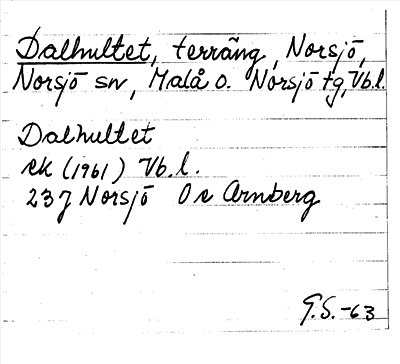 Dalhultet, terräng, Norsjö,
Norsjö sn, Malå o. Norsjö tg, Vb.l.
Dalhultet
ek (1961) Vb.l.
23J Norsjö Oc Arnberg
G.S.-63